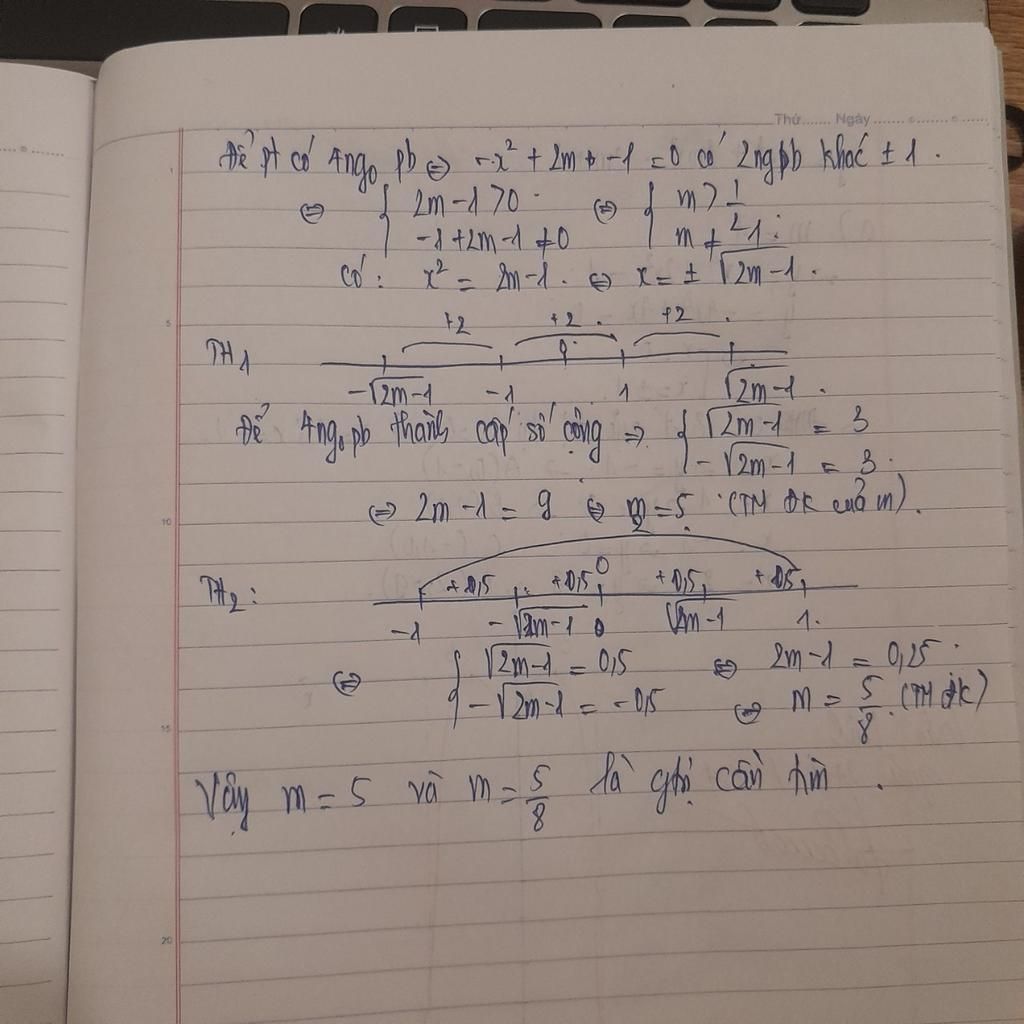 Thứ....... Ngày.......
Để pt có 4ng₀ pb ⇔ -x² + 2m -1 = 0 có 2ng pb khác ± 1.
⇔ { 2m-1 > 0 ⇔ { m > 1/2
-1+2m-1 ≠ 0 m ≠ 1.
Có: x² = 2m-1. ⇔ x = ± √(2m-1).
+2 +2 +2
TH1 0
-√(2m-1) -1 1 √(2m-1).
Để 4ng₀ pb thành cấp số cộng ⇒ { √(2m-1) = 3
-√(2m-1) = 3.
⇔ 2m-1 = 9 ⇔ m = 5. (TM ĐK của m).
2
TH2: +0,5 +0,5 0 +0,5 +0,5
-1 -√(2m-1) 0 √(2m-1) 1.
⇔ { √(2m-1) = 0,5 ⇔ 2m-1 = 0,25.
-√(2m-1) = -0,5 ⇔ m = 5/8. (TM ĐK)
Vậy m = 5 và m = 5/8 là gtrị cần tìm.
5
10
15
20